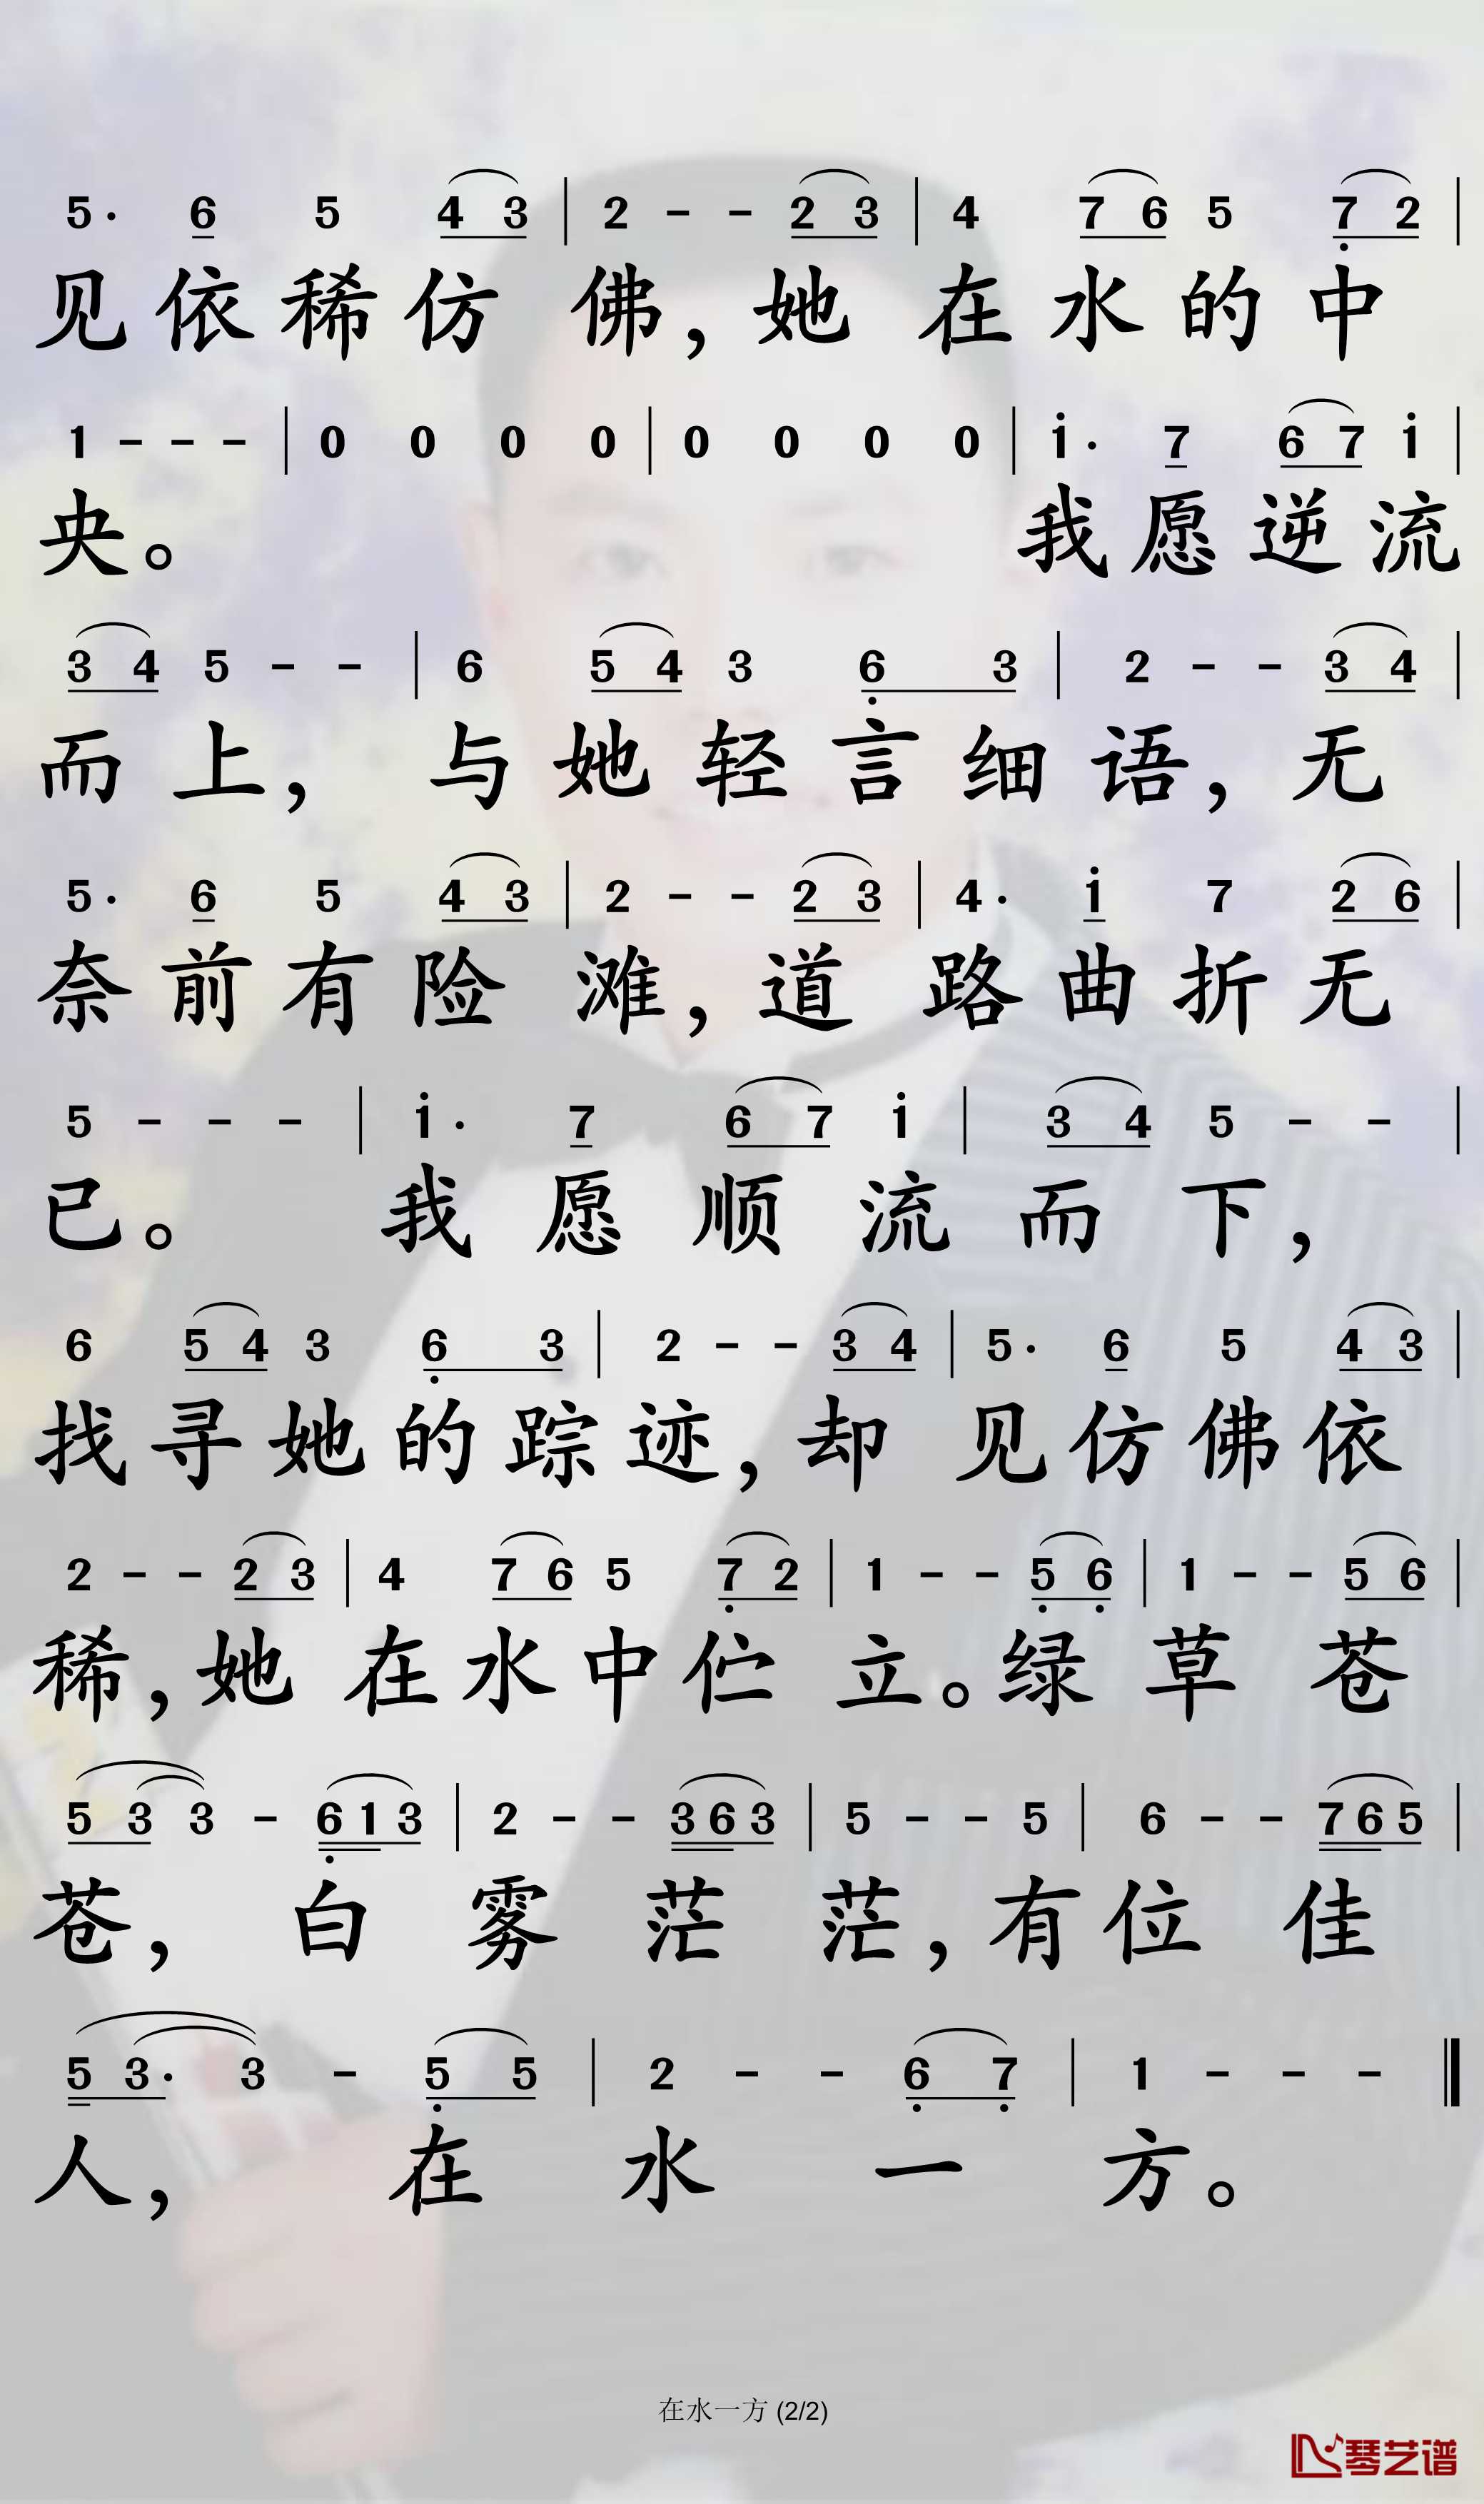 5· 6 5 4 3 | 2 - - 2 3 | 4 7 6 5 7 2 |
见依稀仿 佛，她 在水的中
1 - - - | 0 0 0 0 | 0 0 0 0 | 1· 7 6 7 1 |
央。 我愿逆流
3 4 5 - - | 6 5 4 3 6 3 | 2 - - 3 4 |
而上， 与她轻言细语，无
5· 6 5 4 3 | 2 - - 2 3 | 4· 1 7 2 6 |
奈前有险 滩，道 路曲折无
5 - - - | 1· 7 6 7 1 | 3 4 5 - - |
已。 我愿顺流而下，
6 5 4 3 6 3 | 2 - - 3 4 | 5· 6 5 4 3 |
找寻她的踪迹，却 见仿佛依
2 - - 2 3 | 4 7 6 5 7 2 | 1 - - 5 6 | 1 - - 5 6 |
稀，她 在水中伫 立。绿草 苍
5 3 3 - 6 1 3 | 2 - - 3 6 3 | 5 - - 5 | 6 - - 7 6 5 |
苍， 白 雾 茫 茫，有位 佳
5 3· 3 - 5 5 | 2 - - 6 7 | 1 - - - ‖
人， 在 水 一 方。
在水一方 (2/2)
琴艺谱